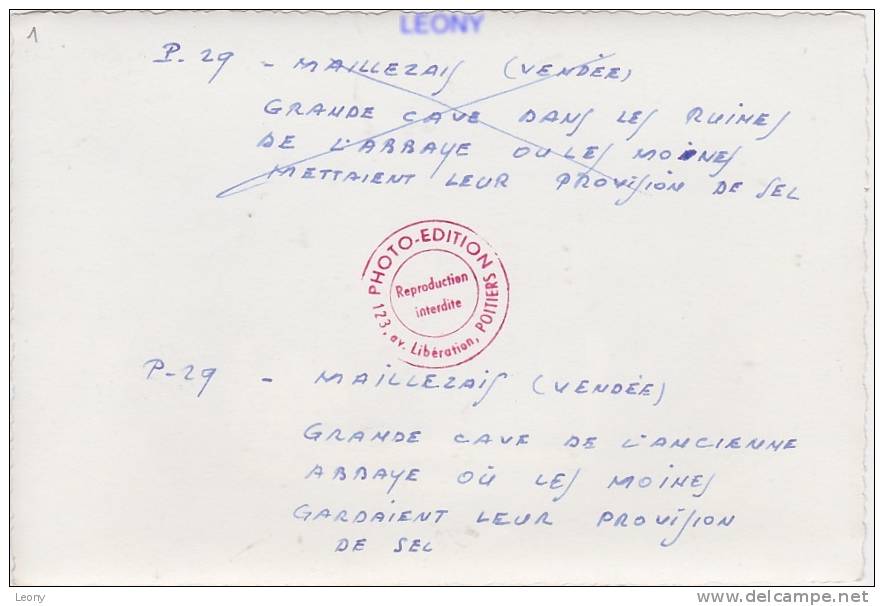 LEONY
1
P. 29 - MAILLEZAIS (VENDÉE)
GRANDE CAVE DANS LES RUINES
DE L'ABBAYE OU LES MOINES
METTAIENT LEUR PROVISION DE SEL
PHOTO-EDITION
Reproduction
interdite
123, av. Libération, POITIERS
P-29 - MAILLEZAIS (VENDÉE)
GRANDE CAVE DE L'ANCIENNE
ABBAYE OÙ LES MOINES
GARDAIENT LEUR PROVISION
DE SEL
Leony
www.delcampe.net